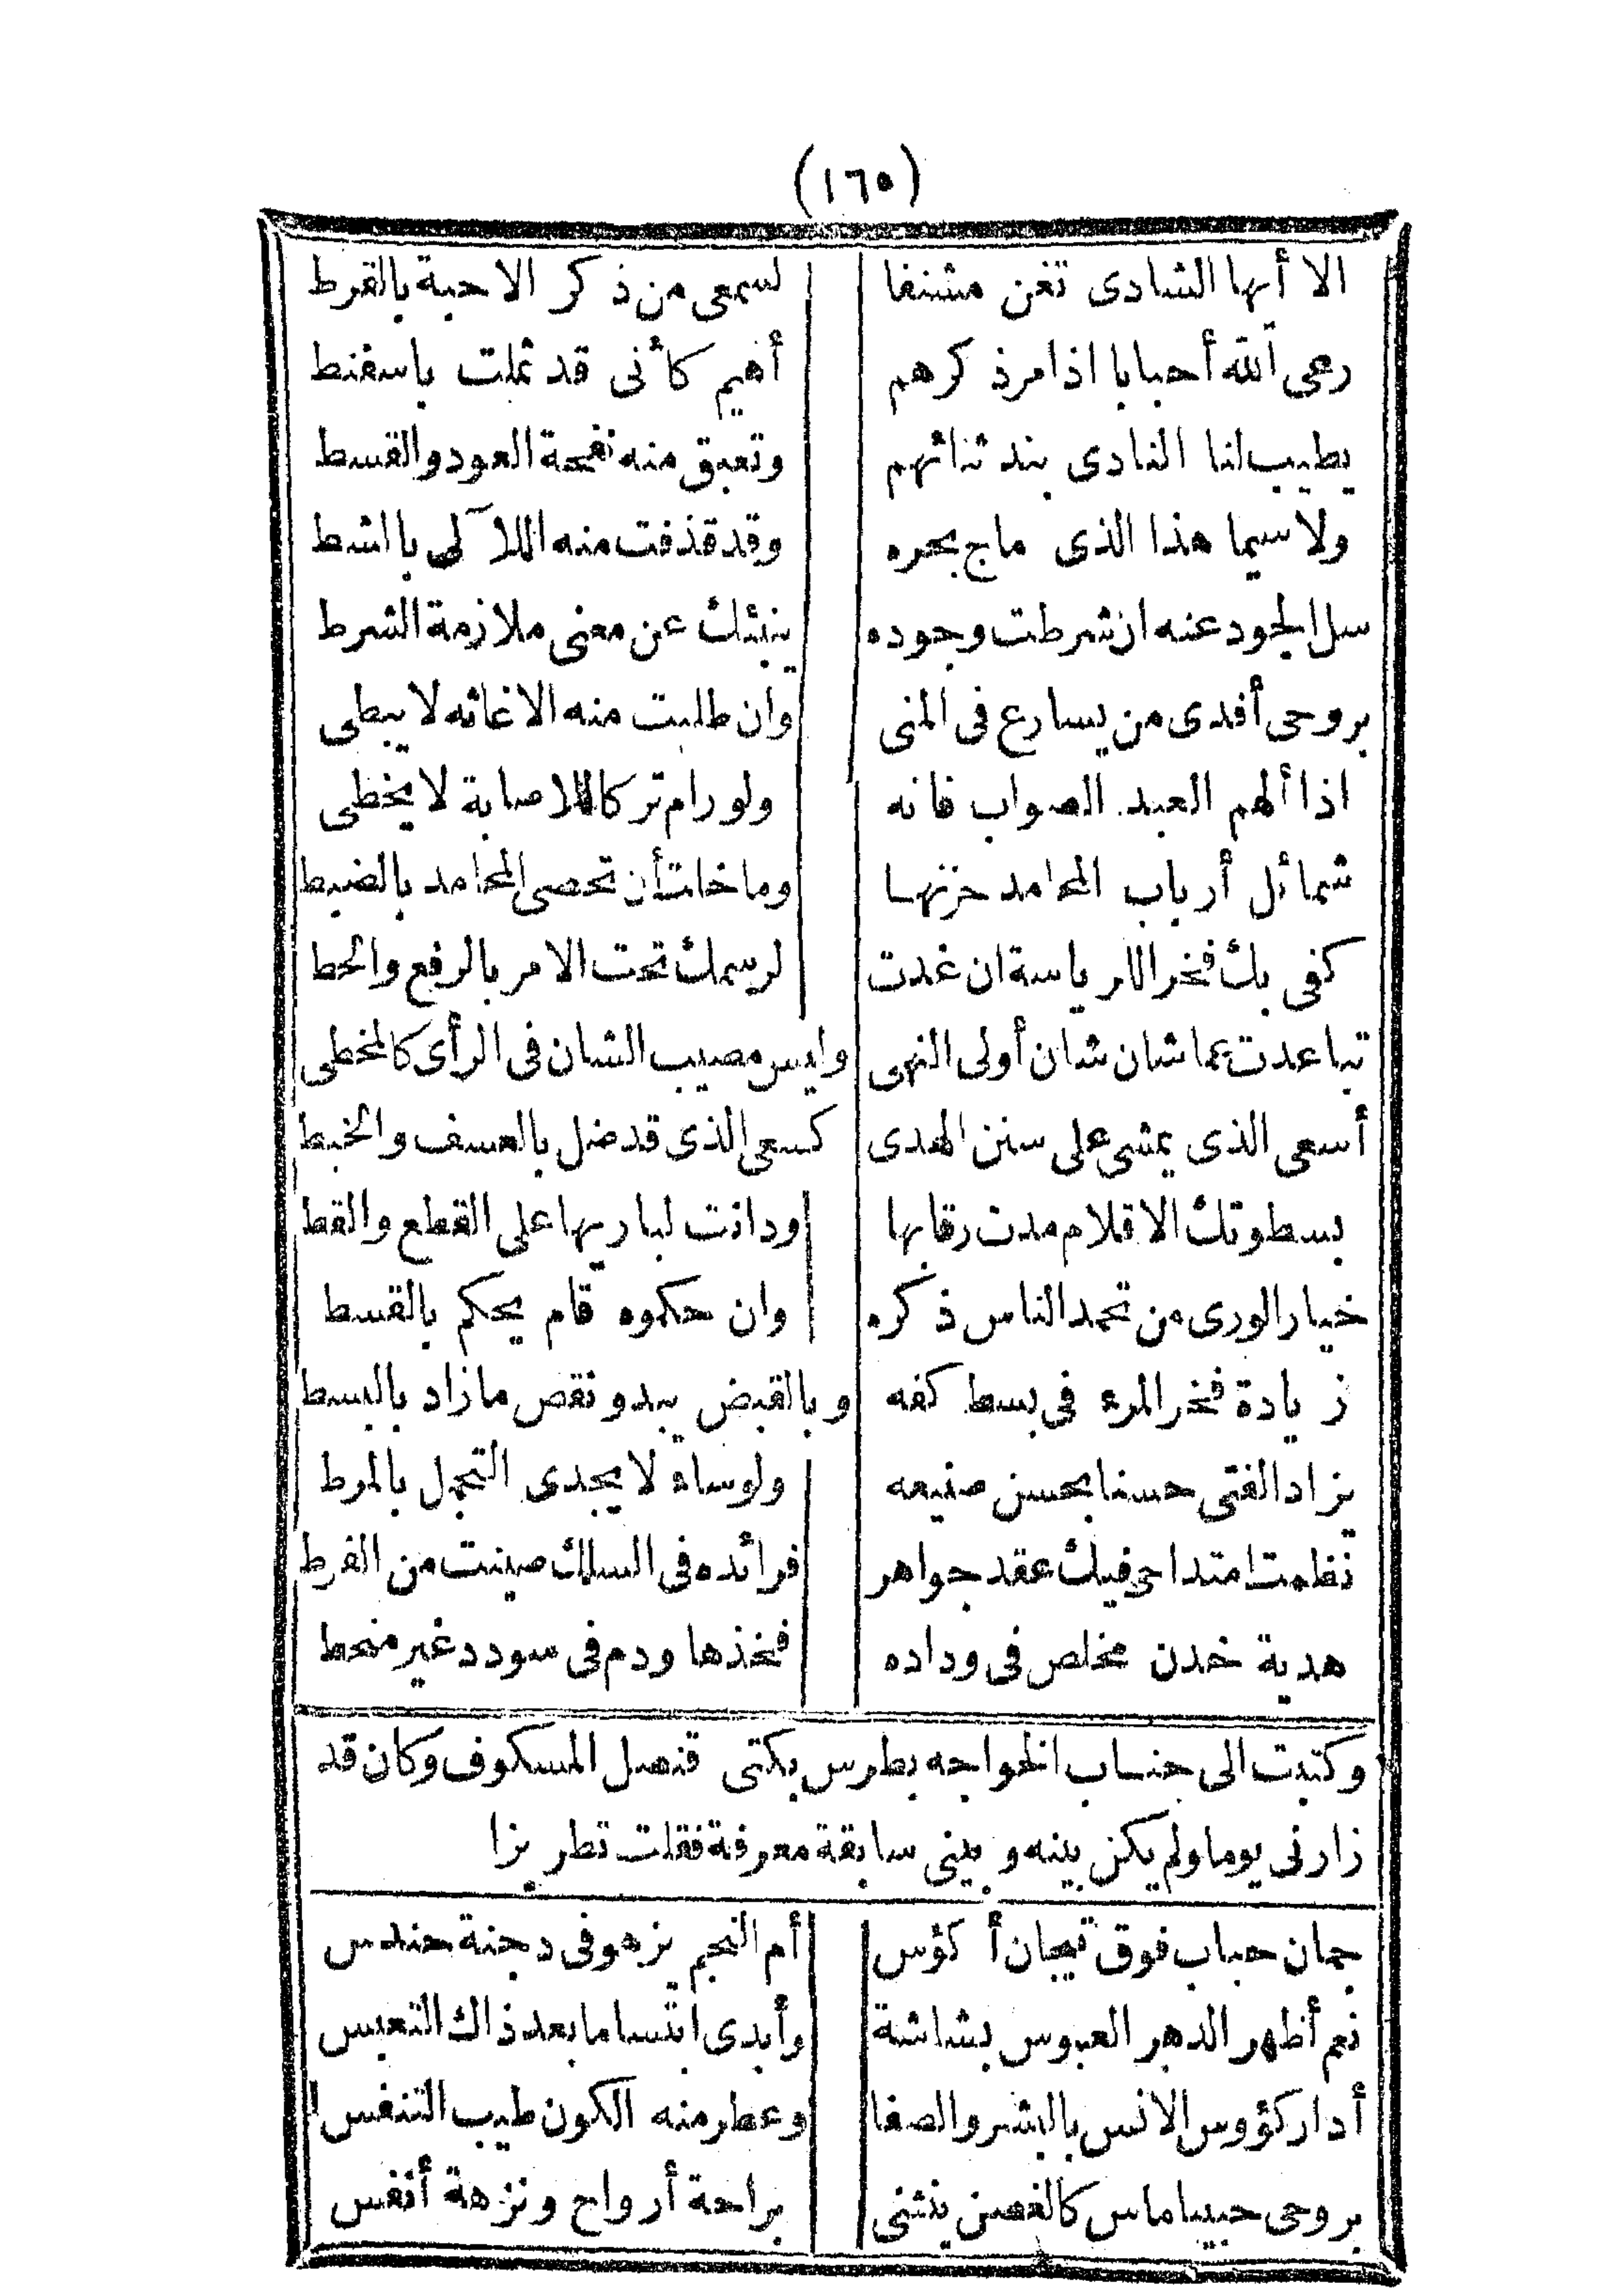 (١٦٥)
الا أيها الشادى تغن مشنفا لسمعى من ذكر الاحبة بالقرط
رعى الله أحبابا اذا مر ذكرهم أهيم كأنى قد ثملت باسفنط
يطيب لنا النادى بند ثنائهم وتعبق منه نفحة العود والقسط
ولا سيما هذا الذى ماج بحره وقد قذفت منه اللآلى بالشط
سل الجود عنه ان شرطت وجوده ينبئك عن معنى ملازمة الشرط
بروحى أفدى من يسارع فى المنى وان طلبت منه الاغاثه لا يبطى
اذا ألهم العبد الصواب فانه ولو رام تركا للاصابة لا يخطى
شمائل أرباب المحامد حزتها وما خلت أن تحصى المحامد بالضبط
كفى بك فخرا للرياسة ان غدت لرسمك تحت الامر بالرفع والحط
تباعدت عما شان شان أولى النهى وليس مصيب الشان فى الرأى كالمخطى
أسعى الذى يمشى على سنن الهدى كسعى الذى قد ضل بالعسف والخبط
بسطوتك الاقلام مدت رقابها ودانت لباريها على القطع والقط
خيار الورى من تحمد الناس ذكره وان حكموه قام يحكم بالقسط
زيادة فخر المرء فى بسط كفه وبالقبض يبدو نقص ما زاد بالبسط
يزاد الفتى حسنا بحسن صنيعه ولو ساء لا يجدى التجمل بالمرط
نظمت امتداحى فيك عقد جواهر فرائده فى السلك صينت من الفرط
هدية خدن مخلص فى وداده فخذها ودم فى سودد غير منحط
وكتبت الى جناب الخواجه بطرس بكتى قنصل المسكوف وكان قد
زارنى يوما ولم يكن بينه وبينى سابقة معرفة فقلت تطريزا
جمان حباب فوق تيجان أكؤس أم النجم يزهو فى دجنة حندس
نعم أظهر الدهر العبوس بشاشة وأبدى ابتساما بعد ذاك التعبس
أدار كؤوس الانس بالبشر والصفا وعطر منه الكون طيب التنفس
بروحى حبيبا ماس كالغصن ينثنى براحة أرواح ونزهة أنفس